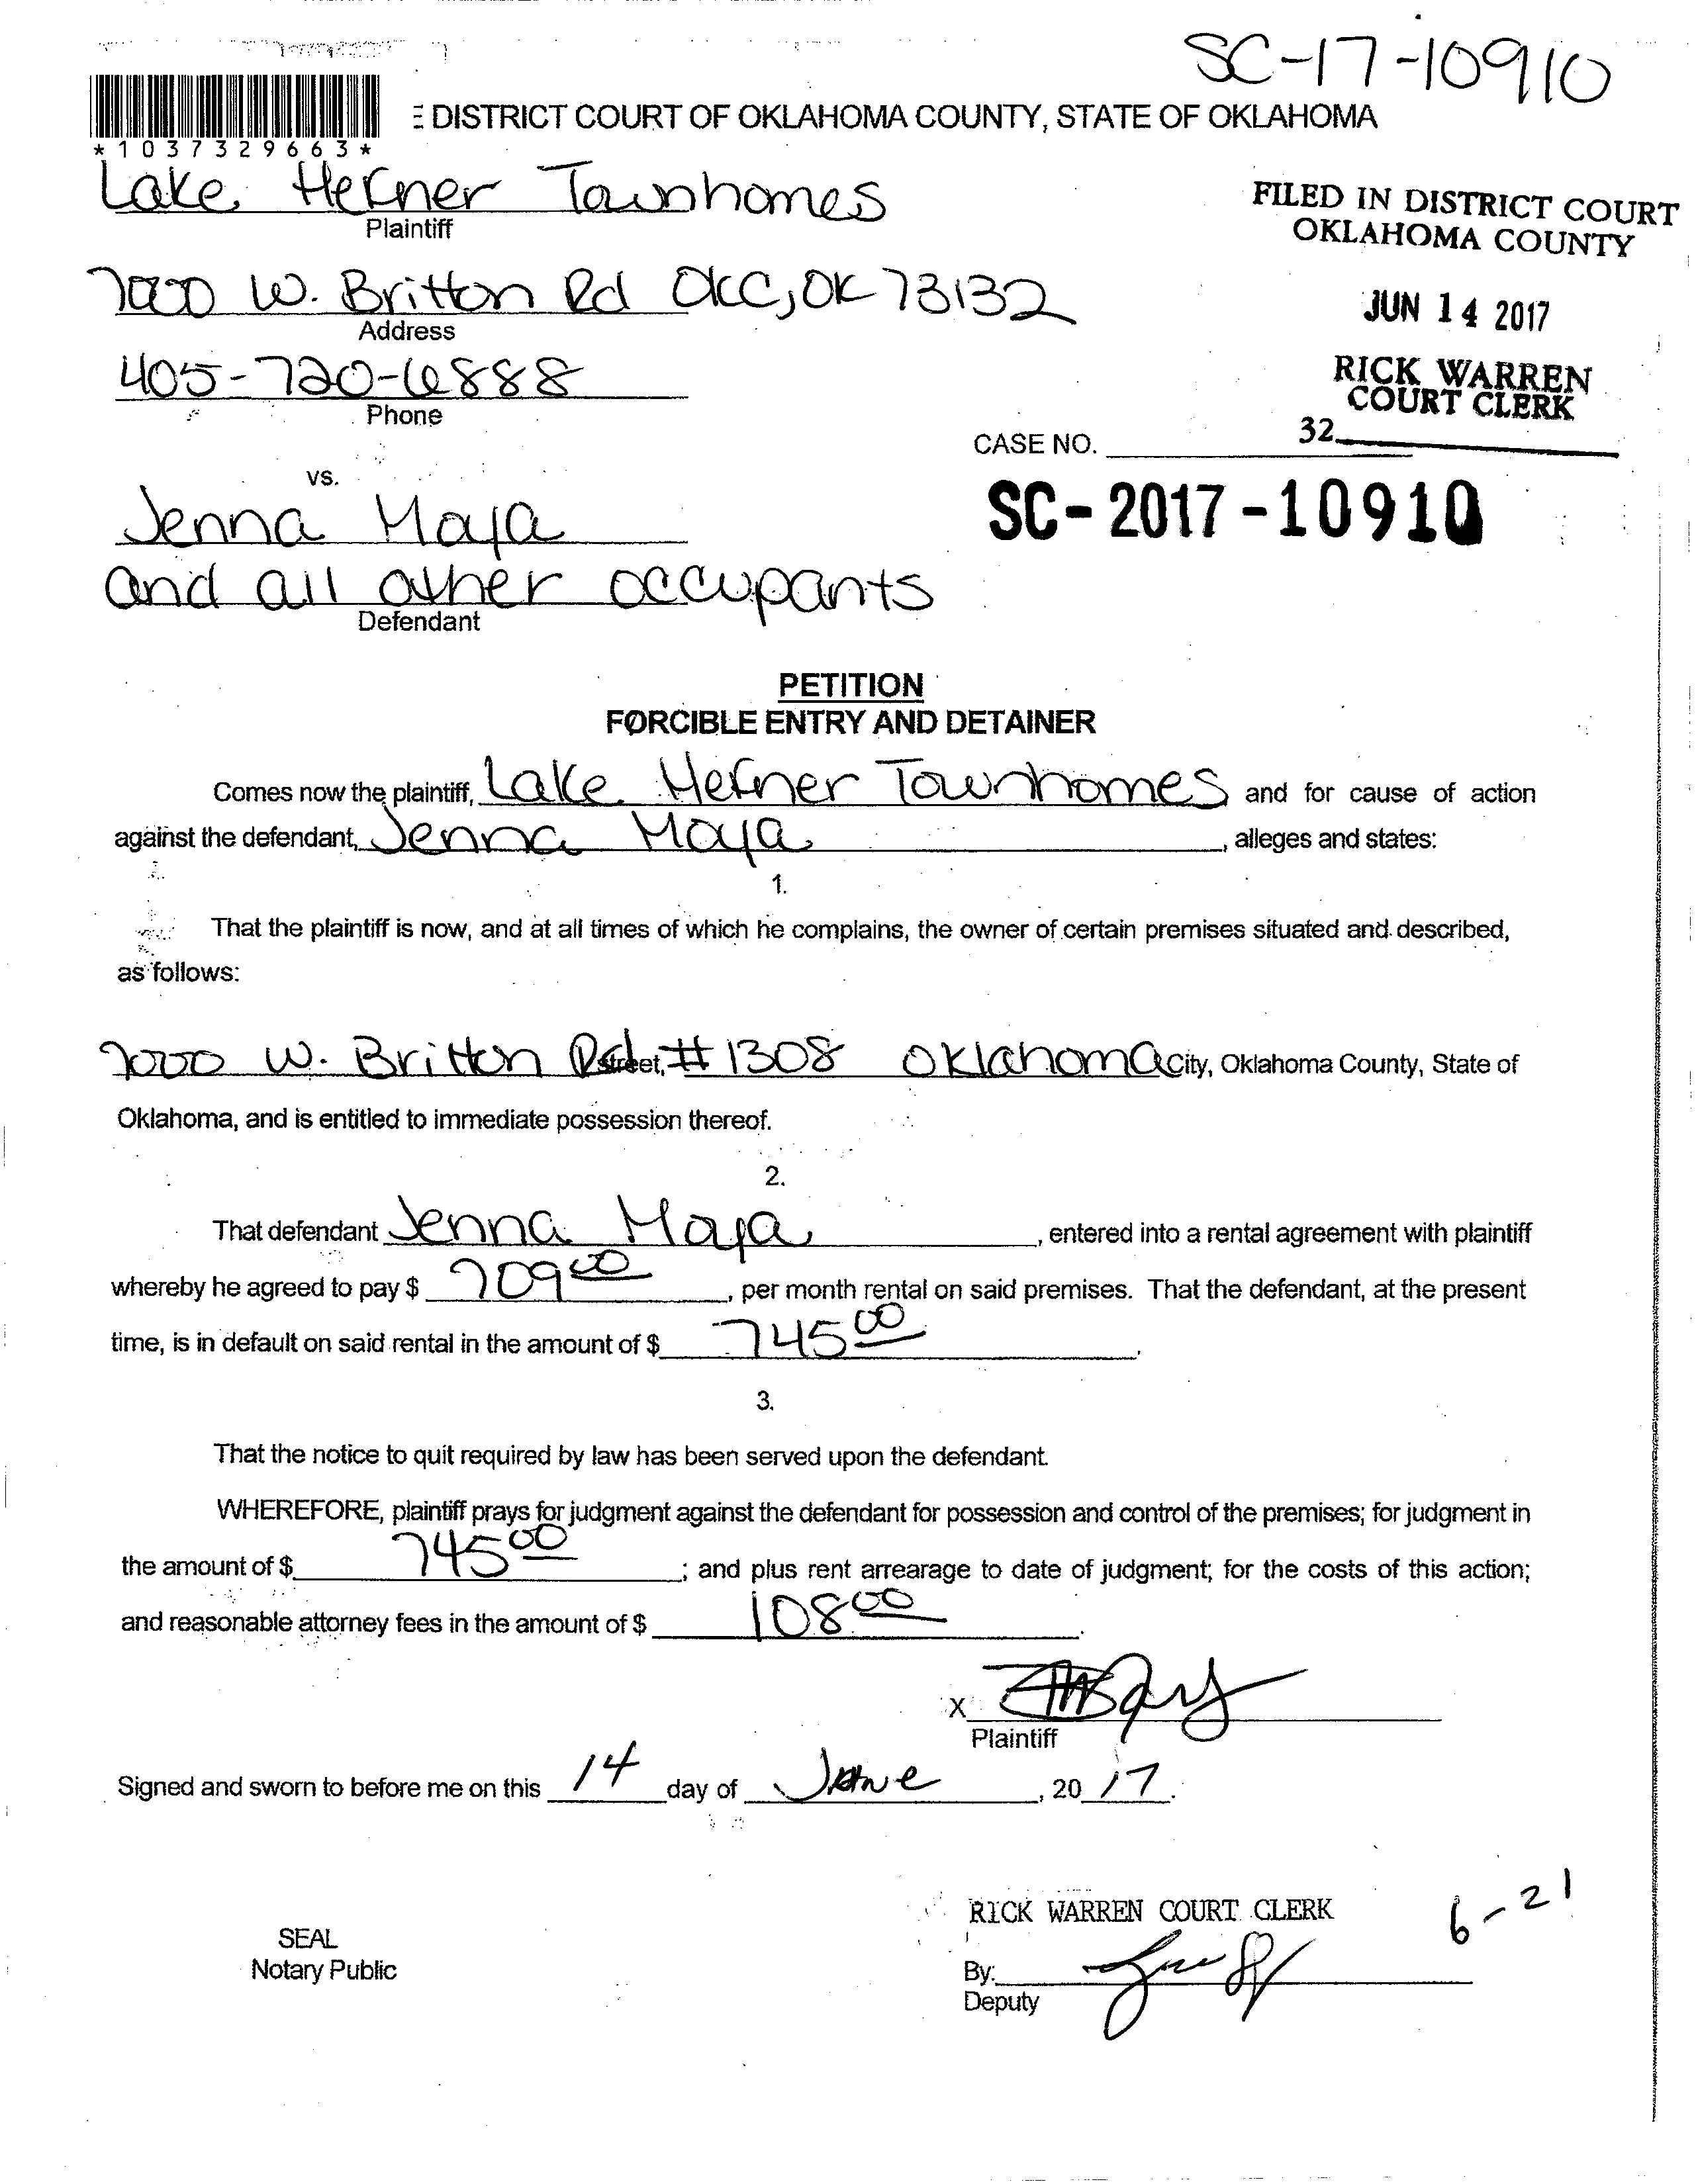 SC-17-10910
E DISTRICT COURT OF OKLAHOMA COUNTY, STATE OF OKLAHOMA
*1037329663*
Lake Hefner Townhomes
Plaintiff
FILED IN DISTRICT COURT
OKLAHOMA COUNTY
7000 W. Britton Rd OKC, OK 73132
Address
JUN 14 2017
405-720-6888
Phone
RICK WARREN
COURT CLERK
32
CASE NO.
vs.
SC-2017-10910
Jenna Maya
and all other occupants
Defendant
PETITION
FORCIBLE ENTRY AND DETAINER
Comes now the plaintiff, Lake Hefner Townhomes and for cause of action
against the defendant, Jenna Maya, alleges and states:
1.
That the plaintiff is now, and at all times of which he complains, the owner of certain premises situated and described,
as follows:
7000 W. Britton Rd street, #1308 Oklahoma City, Oklahoma County, State of
Oklahoma, and is entitled to immediate possession thereof.
2.
That defendant Jenna Maya, entered into a rental agreement with plaintiff
whereby he agreed to pay $ 709 00, per month rental on said premises. That the defendant, at the present
time, is in default on said rental in the amount of $ 745 00.
3.
That the notice to quit required by law has been served upon the defendant.
WHEREFORE, plaintiff prays for judgment against the defendant for possession and control of the premises; for judgment in
the amount of $ 745 00; and plus rent arrearage to date of judgment; for the costs of this action;
and reasonable attorney fees in the amount of $ 108 00.
X
Plaintiff
Signed and sworn to before me on this 14 day of June, 20 17.
RICK WARREN COURT CLERK
6-21
SEAL
Notary Public
By:
Deputy